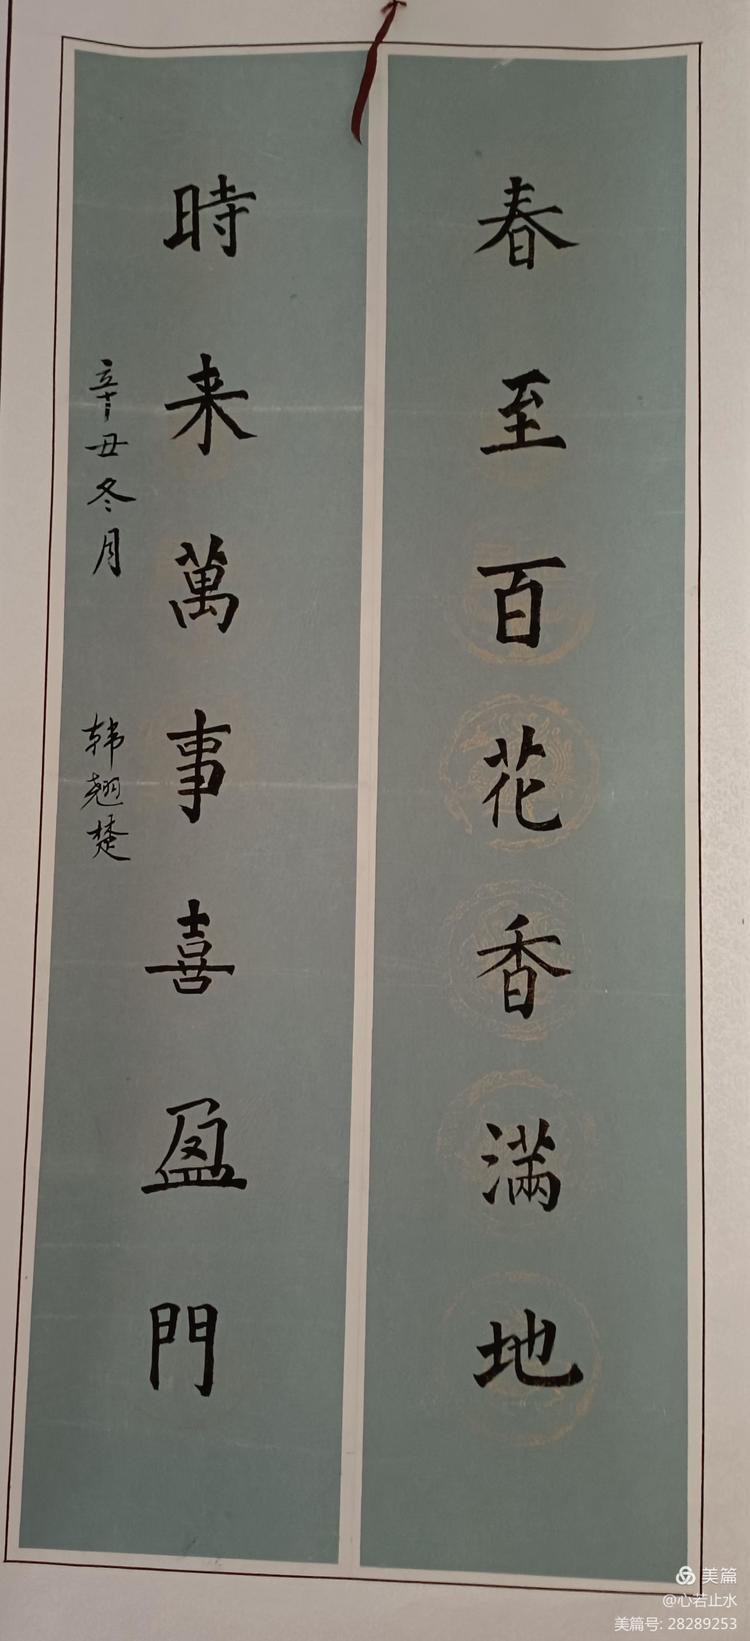 春至百花香滿地
時来萬事喜盈門
辛丑冬月 韩翘楚
美篇
@心若止水
美篇号: 28289253